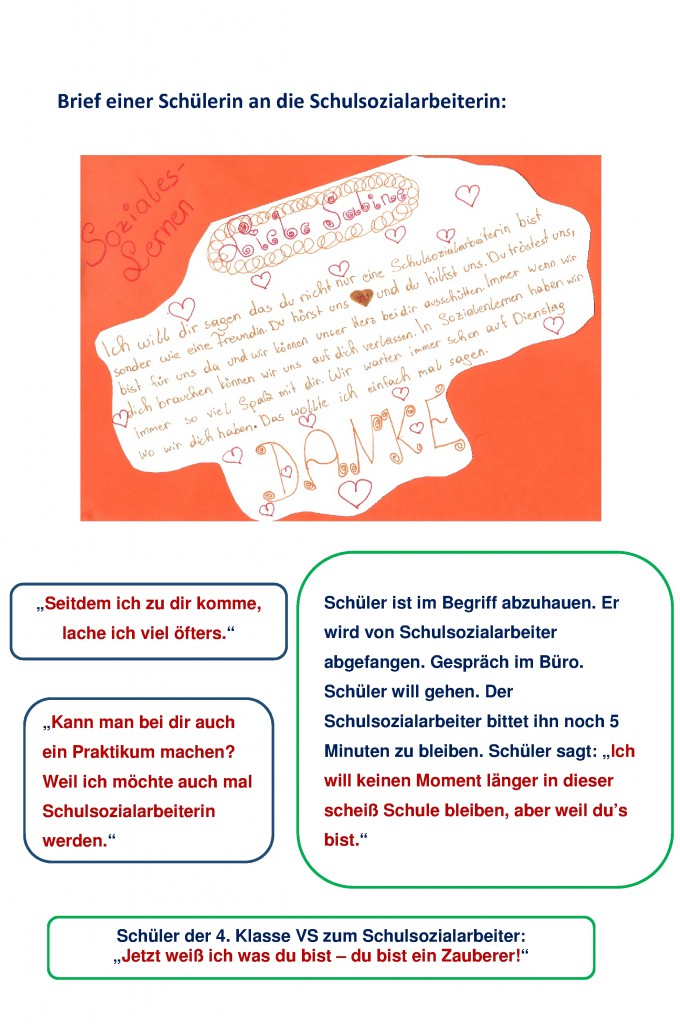 Brief einer Schülerin an die Schulsozialarbeiterin:
Soziales-
Lernen
Liebe Sabine
Ich will dir sagen das du nicht nur eine Schulsozialarbeiterin bist
sonder wie eine Freundin. Du hörst uns und du hilfst uns. Du tröstest uns,
bist für uns da und wir können unser Herz bei dir ausschütten. Immer wenn wir
dich brauchen können wir uns auf dich verlassen. In Sozialenlernen haben wir
immer so viel Spaß mit dir. Wir warten immer schon auf Dienstag
wo wir dich haben. Das wollte ich einfach mal sagen.
DANKE
„Seitdem ich zu dir komme,
lache ich viel öfters.“
„Kann man bei dir auch
ein Praktikum machen?
Weil ich möchte auch mal
Schulsozialarbeiterin
werden.“
Schüler ist im Begriff abzuhauen. Er
wird von Schulsozialarbeiter
abgefangen. Gespräch im Büro.
Schüler will gehen. Der
Schulsozialarbeiter bittet ihn noch 5
Minuten zu bleiben. Schüler sagt: „Ich
will keinen Moment länger in dieser
scheiß Schule bleiben, aber weil du’s
bist.“
Schüler der 4. Klasse VS zum Schulsozialarbeiter:
„Jetzt weiß ich was du bist – du bist ein Zauberer!“